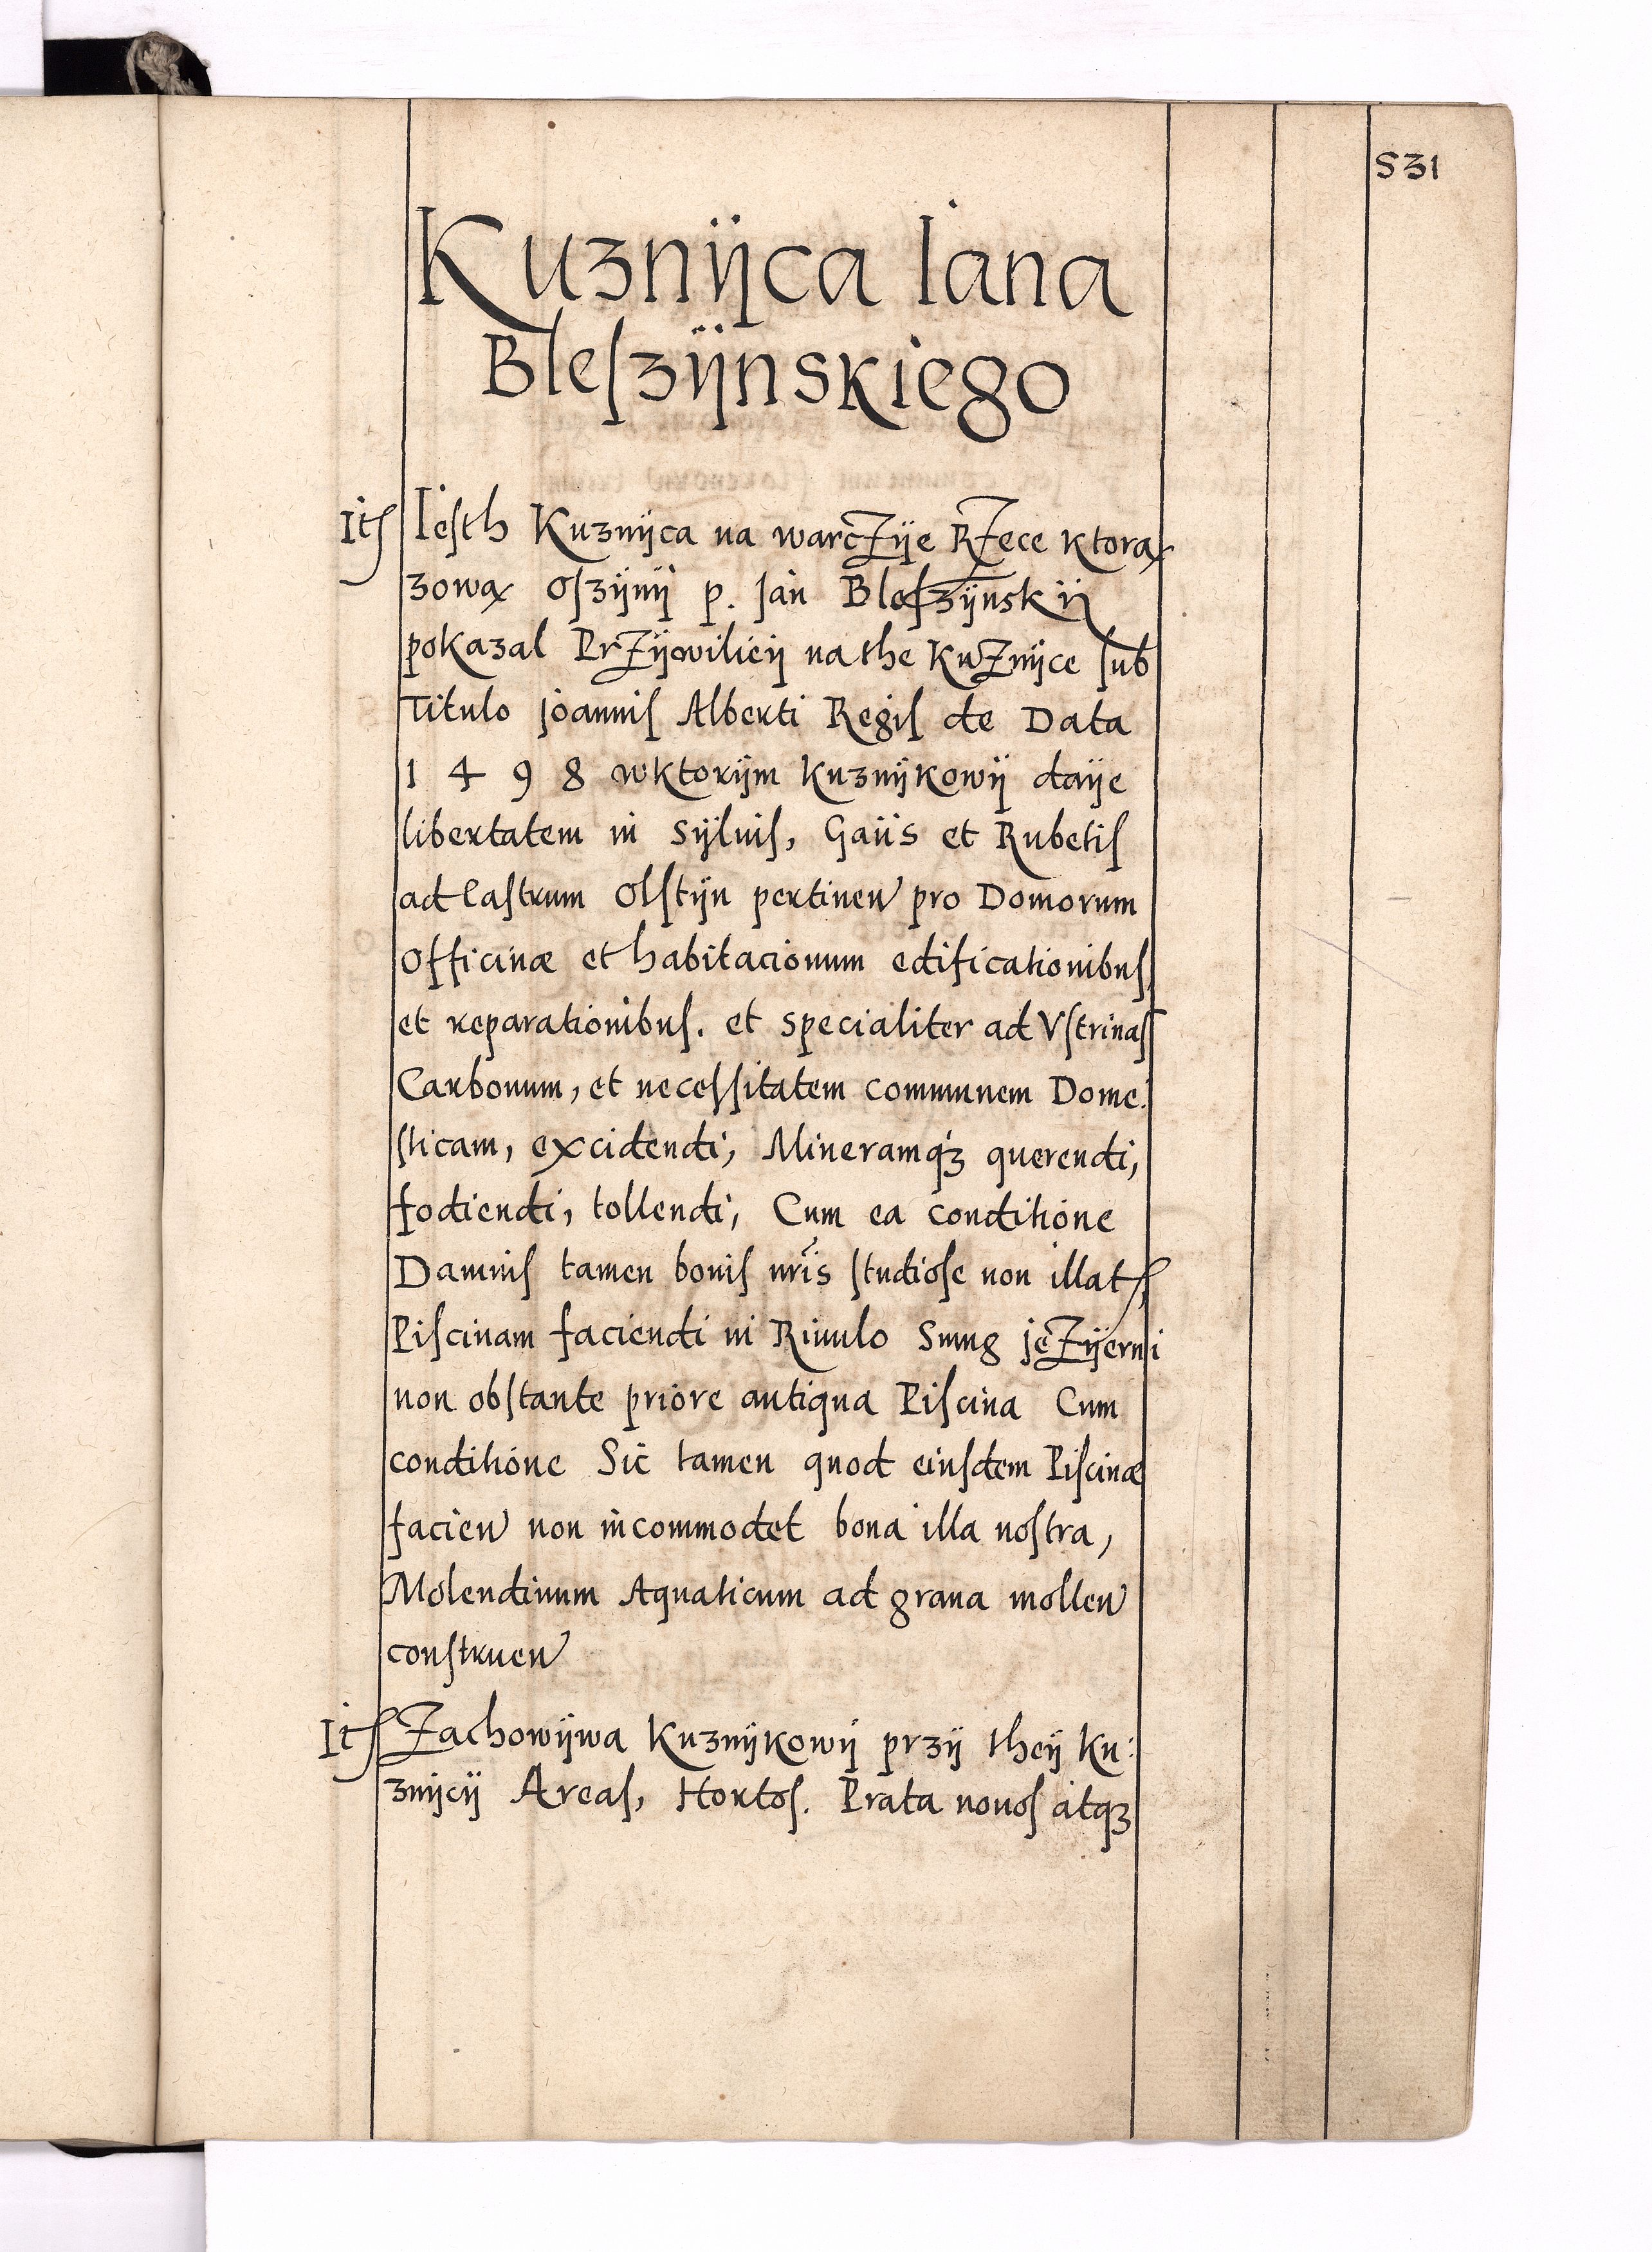 531
Kuznÿca Iana
Bleſzÿnskiego
Itſ Ieſth Kuznÿca na warcZÿe RZece ktorą
zową Oſzÿnÿ p. Jan Bleſzÿnskij
pokazal PrZÿwiliеÿ na the KuZnÿce ſub
Titulo joanniſ Alberti Regiſ de Data
1498 wktorÿm kuznÿkowÿ daÿe
libertatem in Sÿluiſ, Gaÿs et Rubetiſ
ad Caſtrum Olſtÿn pertinen pro Domorum
Officinæ et habitacionum edificationibuſ,
et reparationibuſ. et specialiter ad Vſtrinaſ
Carbonum, et neceſſitatem communem Dome:
ſticam, excidendi, Mineramqꝫ querendi,
fodiendi, tollendi, Cum ea conditione
Damniſ tamen boniſ nr̃is ſtudioſe non illatſ,
Piſcinam faciendi in Riuulo Smug jeZÿerni
non obſtante priore antiqua Piſcina Cum
conditione Sic tamen quod eiuſdem Piſcinæ
facien non incommodet bona illa noſtra,
Molendinum Aquaticum ad grana mollen
conſtruen
Itſ Zachowÿwa Kuznÿkowÿ przÿ theÿ ku:
znÿcÿ Areaſ, Hortoſ. Prata nouoſ atqꝫ